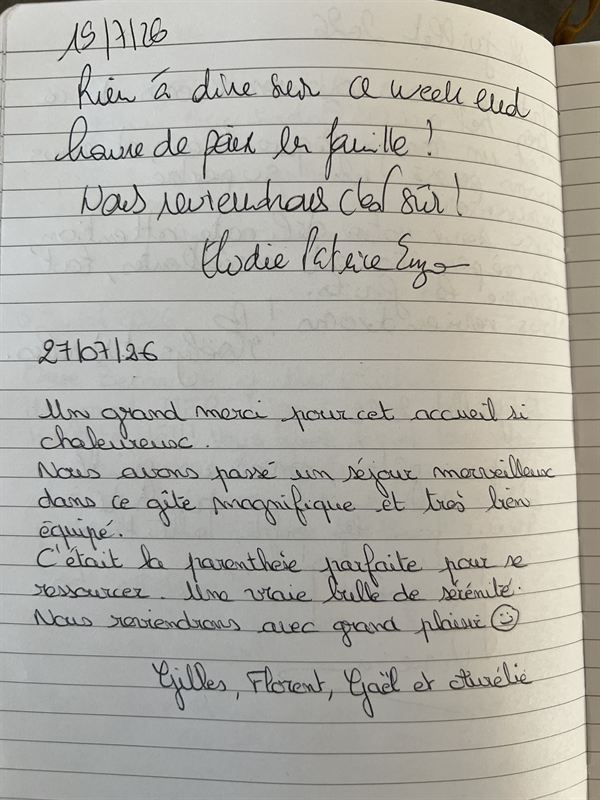 19/7/26
Rien à dire sur ce week end
havre de paix en famille !
Nous reviendrons c'est sûr !
Elodie Patrice Enzo
27/07/26
Un grand merci pour cet accueil si
chaleureuse.
Nous avons passé un séjour merveilleux
dans ce gîte magnifique et très bien
équipé.
C'était la parenthèse parfaite pour se
ressourcer. Une vraie bulle de sérénité.
Nous reviendrons avec grand plaisir ☺
Gilles, Florent, Gaël et Aurélie